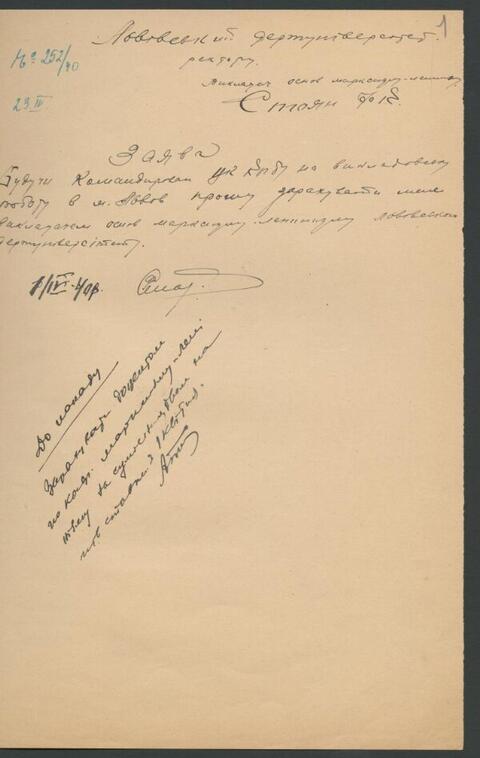 1
Львовський держуніверситет.
ректору.
№ 252/40
23 IV
викладач основ марксизму-ленінізму
Стоян
Заява
Будучи командирован ЦК КП/б/У на викладовську
роботу в м. Львов прошу зарахувати мене
викладачем основ марксизму-ленінізму Львовського
держуніверсітету.
1/IV-40р.
До наказу
Зарахувати доцентом
по каф. марксизму-лені
нізму за сумісництвом на
пів ставки з 1 квітня.